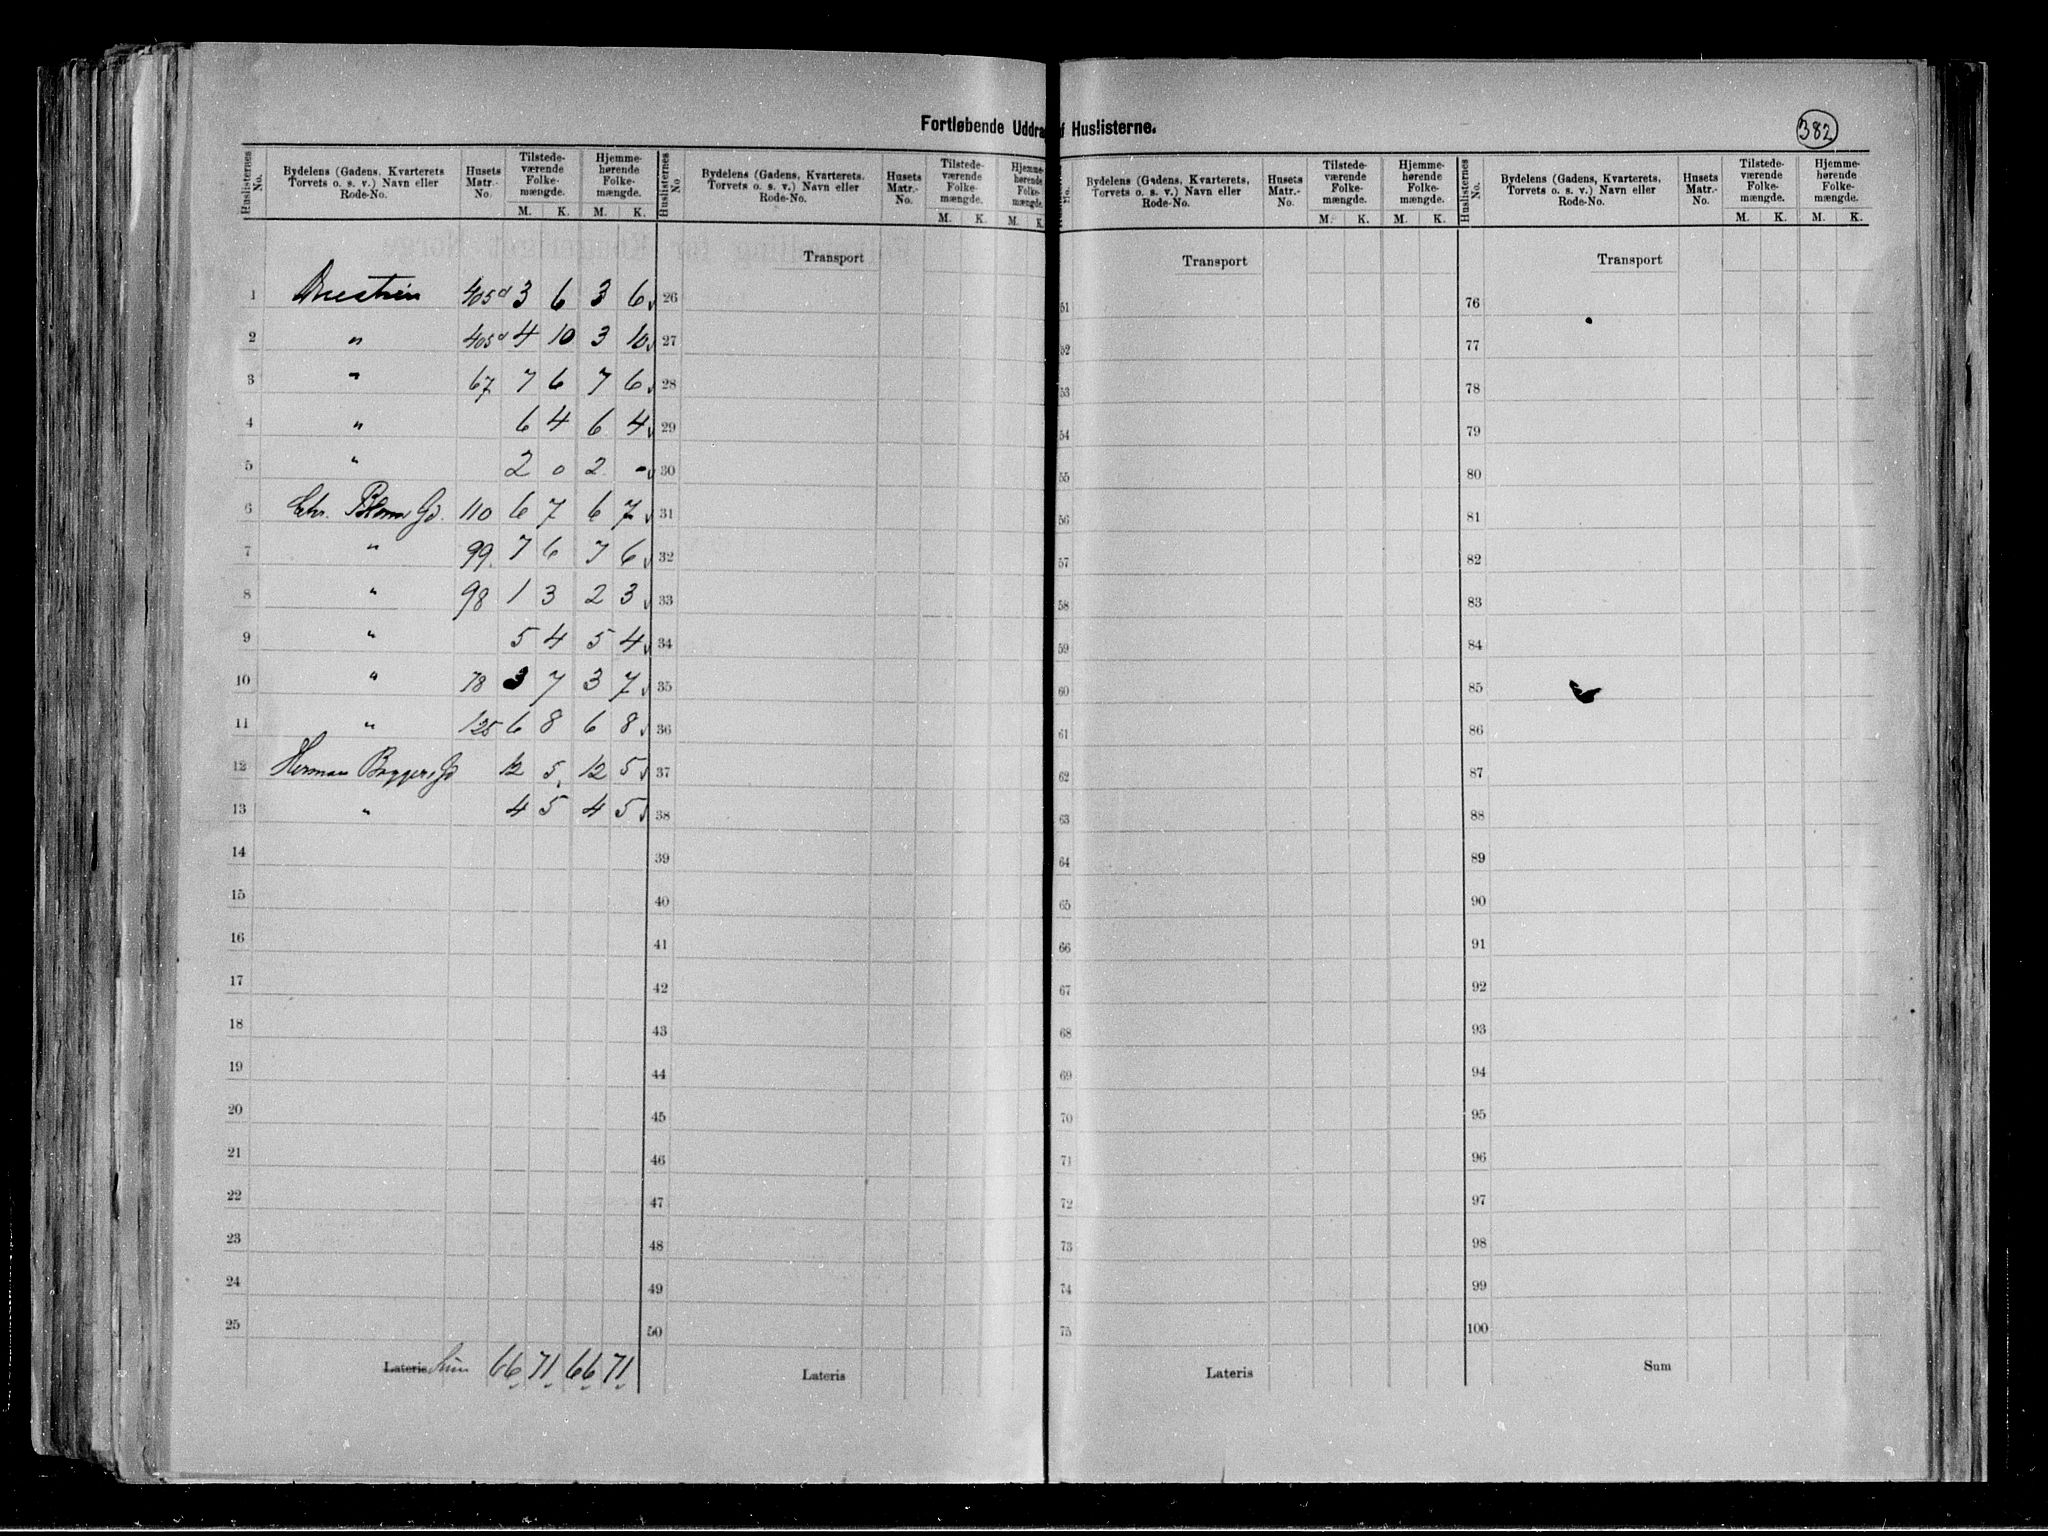 Fortløbende Uddra f Huslisterne.
382
Huslisternes No. Bydelens (Gadens, Kvarterets Torvets o. s. v.) Navn eller Rode-No. Husets Matr.-No. Tilstede-værende Folke-mængde. M. K. Hjemme-hørende Folke-mængde. M. K.
1 405d 3 6 3 6
2 " 405d 4 10 3 10
3 " 67 7 6 7 6
4 " 6 4 6 4
5 " 2 0 2 -
6 Chr. Blom Gd. 110 6 7 6 7
7 " 99. 7 6 7 6
8 " 98 1 3 2 3
9 " 5 4 5 4
10 " 78 3 7 3 7
11 " 125 6 8 6 8
12 Herman Baggers Gd 12 5 12 5
13 " 4 5 4 5
14
15
16
17
18
19
20
21
22
23
24
25
Lateris Sum 66 71 66 71
Huslisternes No Bydelens (Gadens, Kvarterets, Torvets o. s. v.) Navn eller Rode-No. Husets Matr.-No. Tilstede-værende Folke-mængde. M. K. Hjemme-hørende Folke-mængde. M. K.
Transport
26
27
28
29
30
31
32
33
34
35
36
37
38
39
40
41
42
43
44
45
46
47
48
49
50
Lateris
No. Bydelens (Gadens, Kvarterets, Torvets o. s. v.) Navn eller Rode-No. Husets Matr.-No. Tilstede-værende Folke-mængde. M. K. Hjemme-hørende Folke-mængde. M. K.
Transport
51
52
53
54
55
56
57
58
59
60
61
62
63
64
65
66
67
68
69
70
71
72
73
74
75
Lateris
Huslisternes No. Bydelens (Gadens, Kvarterets, Torvets o. s. v.) Navn eller Rode-No. Husets Matr.-No. Tilstede-værende Folke-mængde. M. K. Hjemme-hørende Folke-mængde. M. K.
Transport
76
77
78
79
80
81
82
83
84
85
86
87
88
89
90
91
92
93
94
95
96
97
98
99
100
Sum